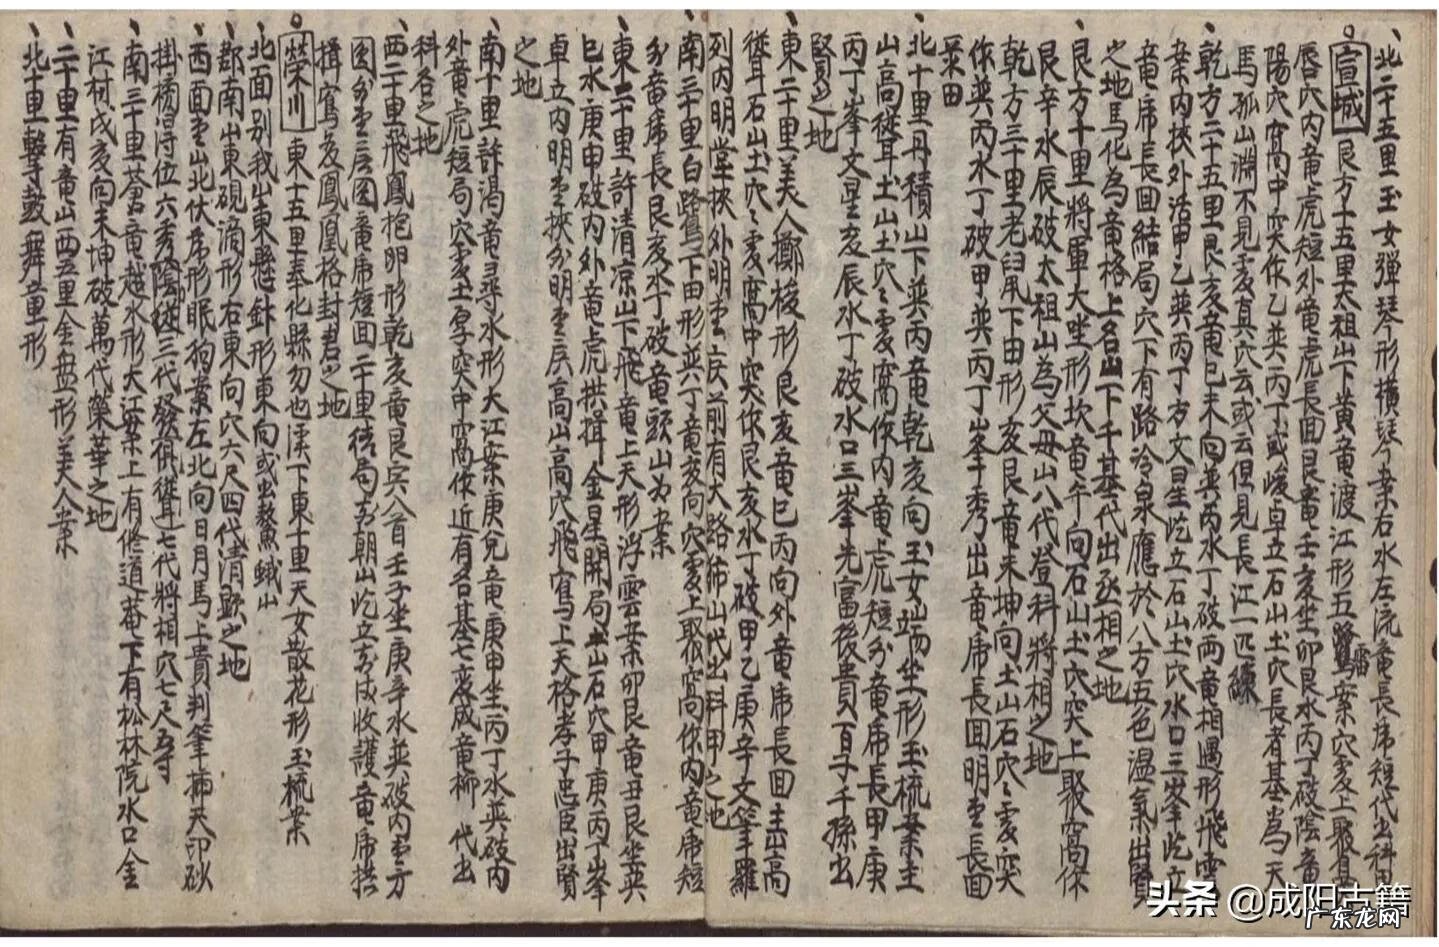 北二十五里玉女彈琴形橫琴案右水左流竜長虎短代出科甲
宣城 艮方十五里太祖山下黃竜渡江形五鷺案穴処上聚
唇穴內竜虎短外竜虎長回艮竜壬亥坐卯艮水丙丁破陰竜
陽穴窩中突作乙並丙丁或峻卓立石山土穴長者基為天
馬孤山淵不見真穴云或云但見長江一匹練
乾方二十五里艮亥竜巳未向並丙水丁破両竜相遇形飛雲
案內挾外活甲乙並丙丁方文星屹立石山土穴水口三峯屹立
竜虎長回結局穴下有路冷泉應於八方五色温氣出賢
之地馬化為竜格上名山下千基代出丞相之地
艮方十里將軍大坐形坎竜午向石山土穴突上聚窩作
艮辛水辰破太祖山為父母山八代登科將相之地
乾方三十里老鼠下田形亥艮竜未坤向土山石穴突
作並丙水丁破甲並丙丁峯秀出竜虎長回明堂長面
案田
北十里丹積山下並丙竜乾亥向玉女端坐形玉梳案主
山高聳耳土山土穴窩作內竜虎短外竜虎長甲庚
丙丁峯文星亥辰水丁破水口三峯先富後貴百子千孫出
賢之地
東二十里美人擲梭形艮亥竜巳丙向外竜虎長回主山高
聳耳石山土穴窩中突作艮亥水丁破甲乙庚辛文筆羅
列內明堂挾外明堂広前有大路師山代出科甲之地
南三十里白鷺下田形並丁竜亥向穴上聚窩作內竜虎短
外竜虎長艮亥水丁破竜頭山为案
東二十里許清凉山下飛竜上天形浮雲案卯艮竜丑艮坐並
巳水庚申破內外竜虎拱揖金星開局土山石穴甲庚丙丁峯
卓立內明堂挾外明堂広高山高穴飛鴬上天格孝子忠臣出賢
之地
南十里許渴竜尋水形大江案庚兌竜庚申坐丙丁水並破內
外竜虎短局穴土厚突中窩作近有名基七変成竜柳代出
科名之地
西二十里飛鳳抱卵形乾亥竜艮突入首壬子坐庚辛水並破內堂方
圓外堂広圓竜虎短回二十里結局外朝山屹立収護竜虎拱
揖鴬変鳳凰格封君之地
榮川 東十五里奉化縣勿也溪下東十里天女散花形玉梳案
北面别我山東懸針形東向或出鰲魚峨山
郡南山東硯滴形右東向穴六尺四代清顯之地
西面堂山北伏虎形眠狗案左北向日月馬上貴判筆揷天印砂
掛榜得位六秀三代發七代將相穴七尺五寸
南三十里蒼竜越水形大江案上有修道菴下有松林院水口金
江村戌亥向未坤破萬代榮華之地
二十里有竜山西五里金盘形美人案
北十里擊鼓舞童形
头条 @成阳古籍
广东龙网